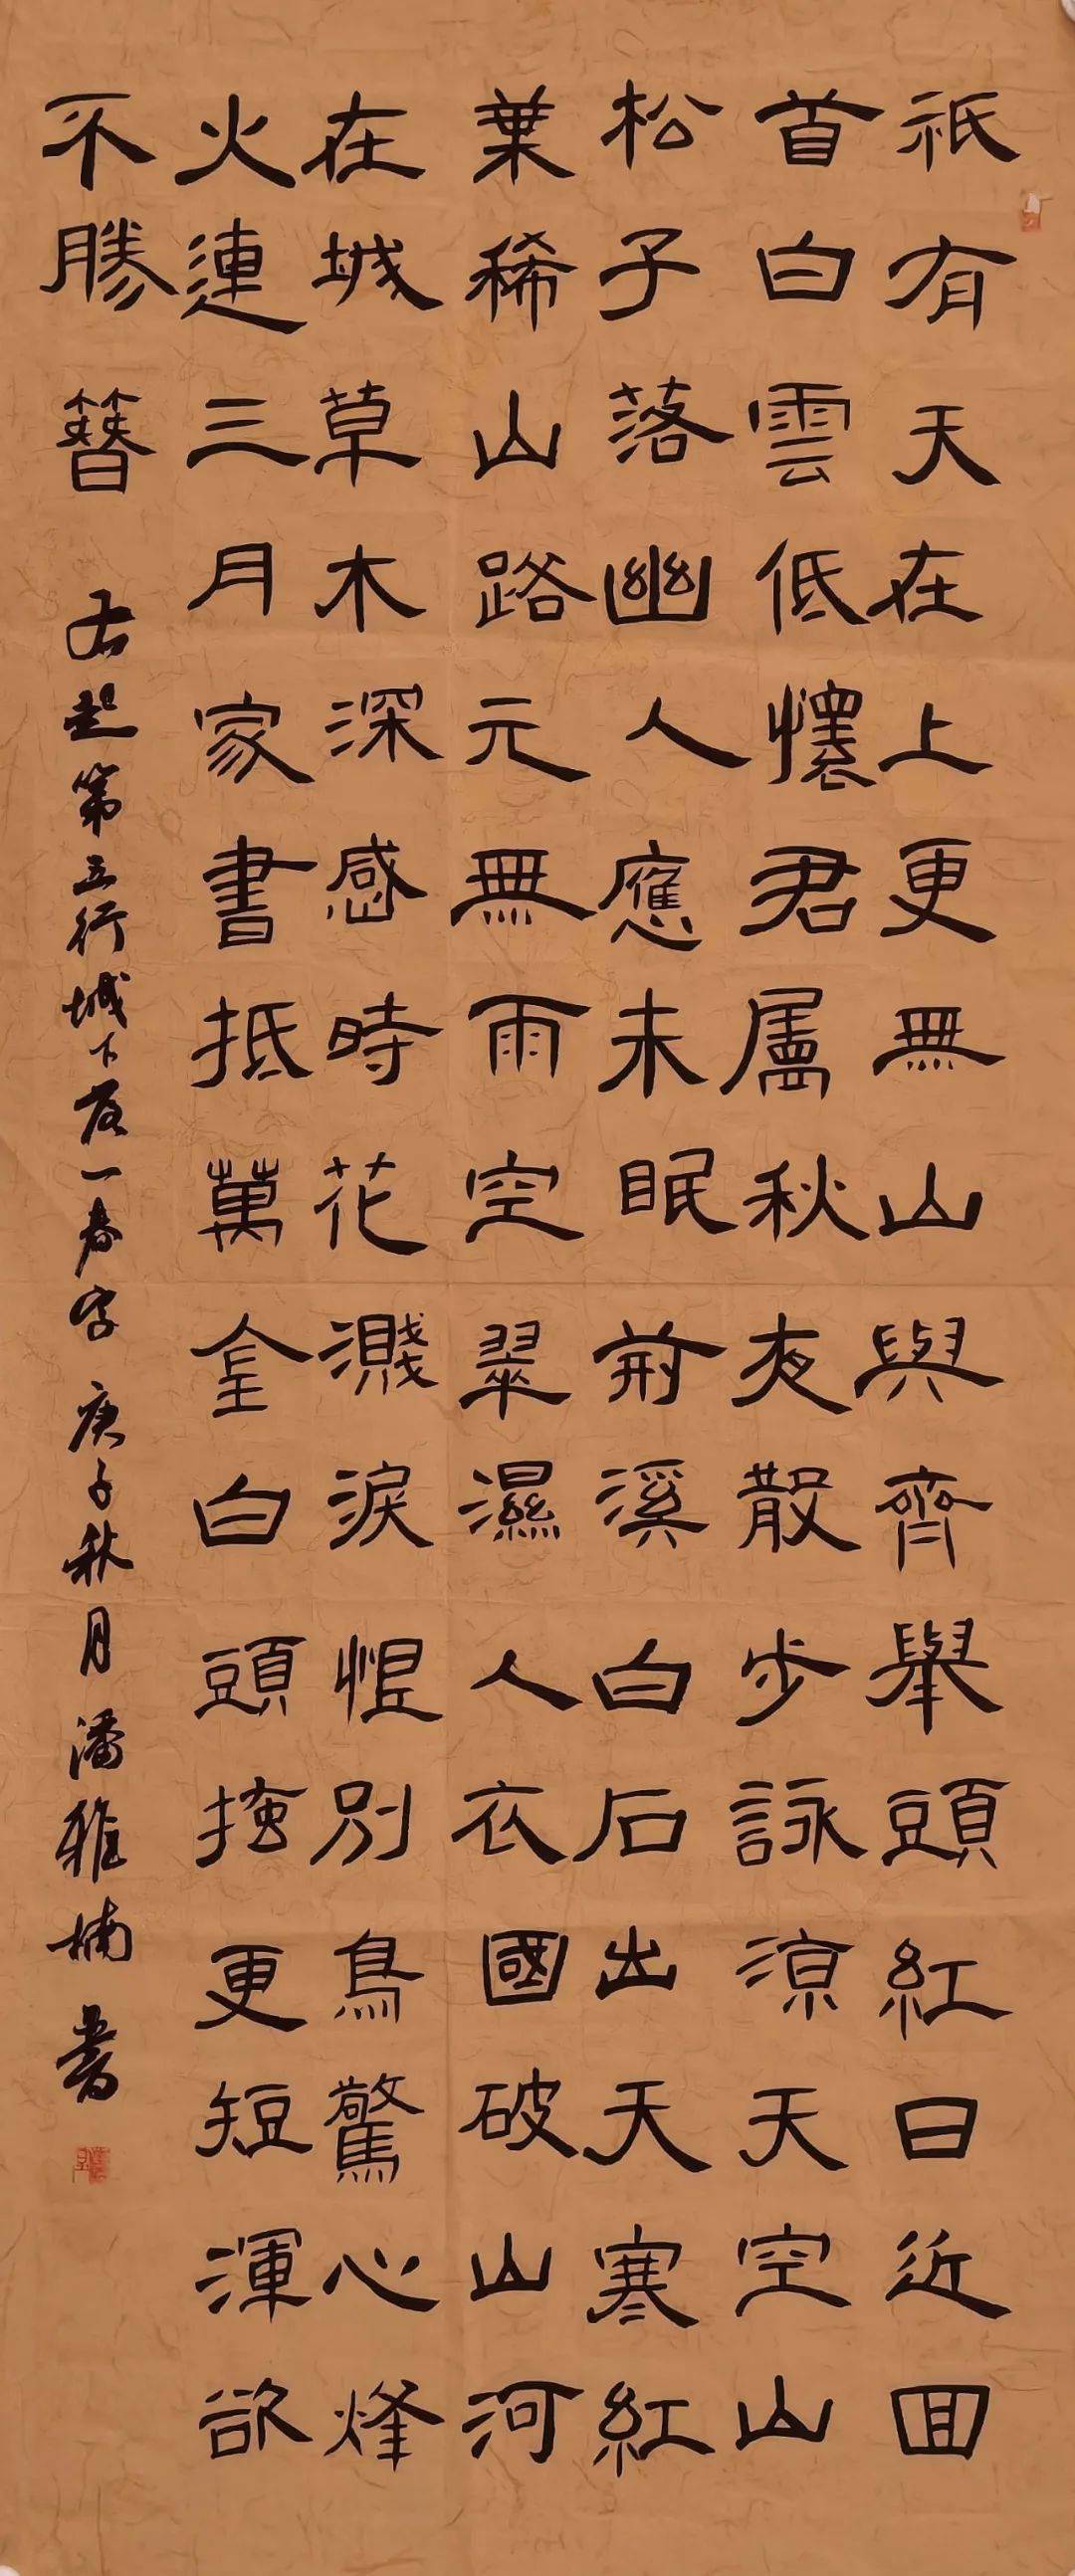 祇有天在上更無山與齊舉頭紅日近回
首白雲低懷君屬秋夜散步詠涼天空山
松子落幽人應未眠荊溪白石出天寒紅
葉稀山路元無雨空翠濕人衣國破山河
在城草木深感時花濺淚恨別鳥驚心烽
火連三月家書抵萬金白頭搔更短渾欲
不勝簪
右起第五行城下落一春字 庚子秋月潘雅楠書